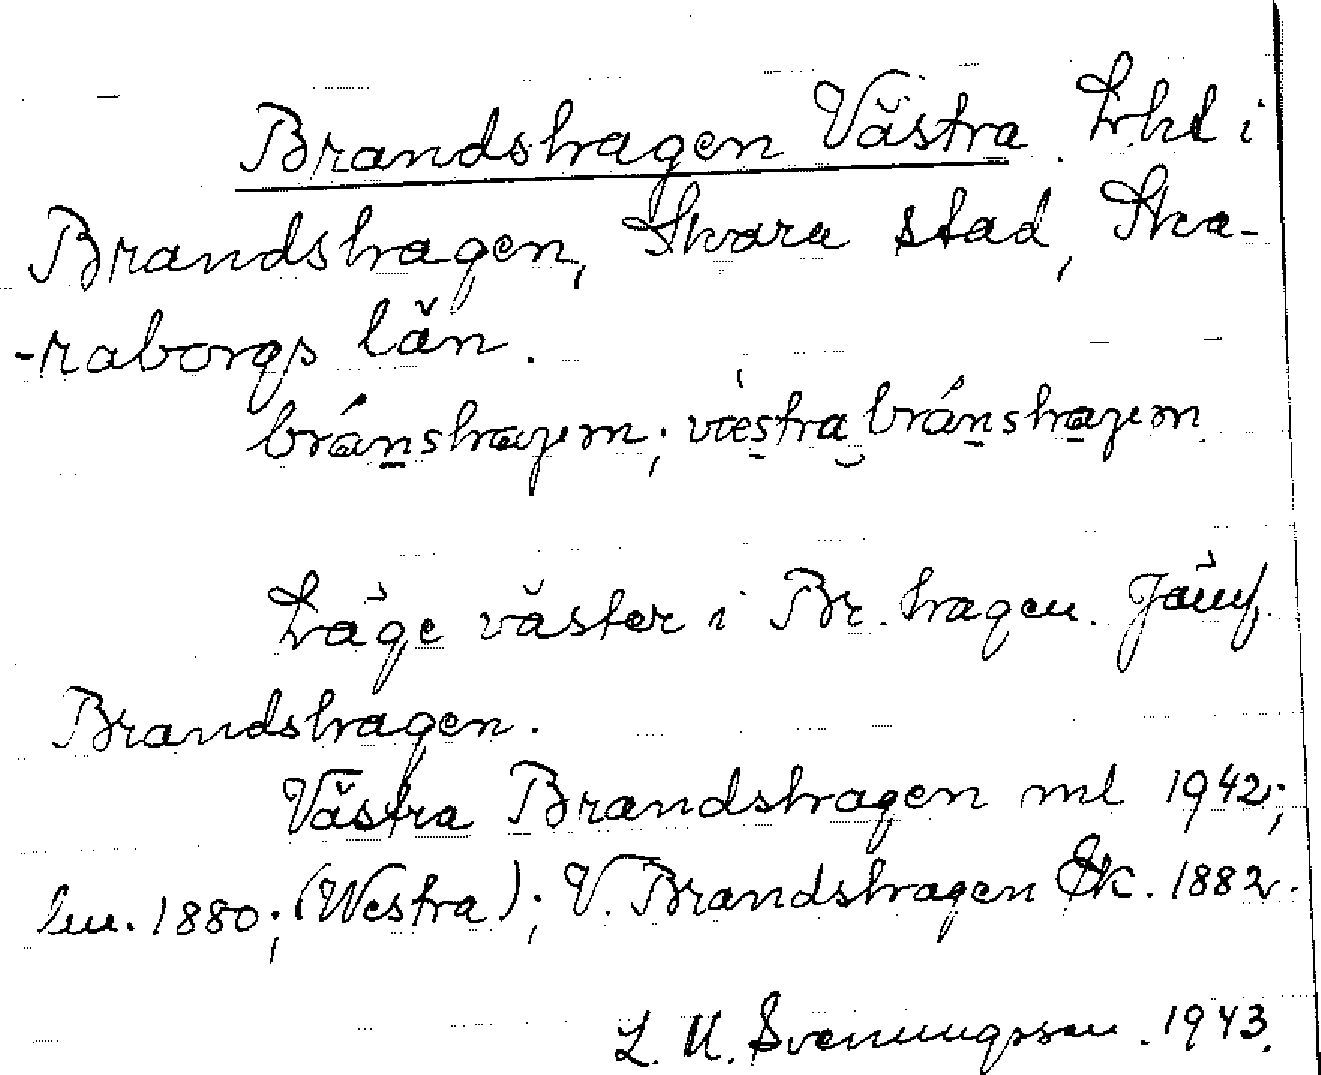 Brandshagen Västra. Lht i
Brandshagen, Skara stad, Ska-
-raborgs län.
bránshagen; væstra bránshagen
Läge väster i Br. hagen. Jämf.
Brandshagen.
Västra Brandshagen ml 1942;
hm. 1880; (Westra); V. Brandshagen Ek. 1882.
L. M. Svenungsson. 1943.